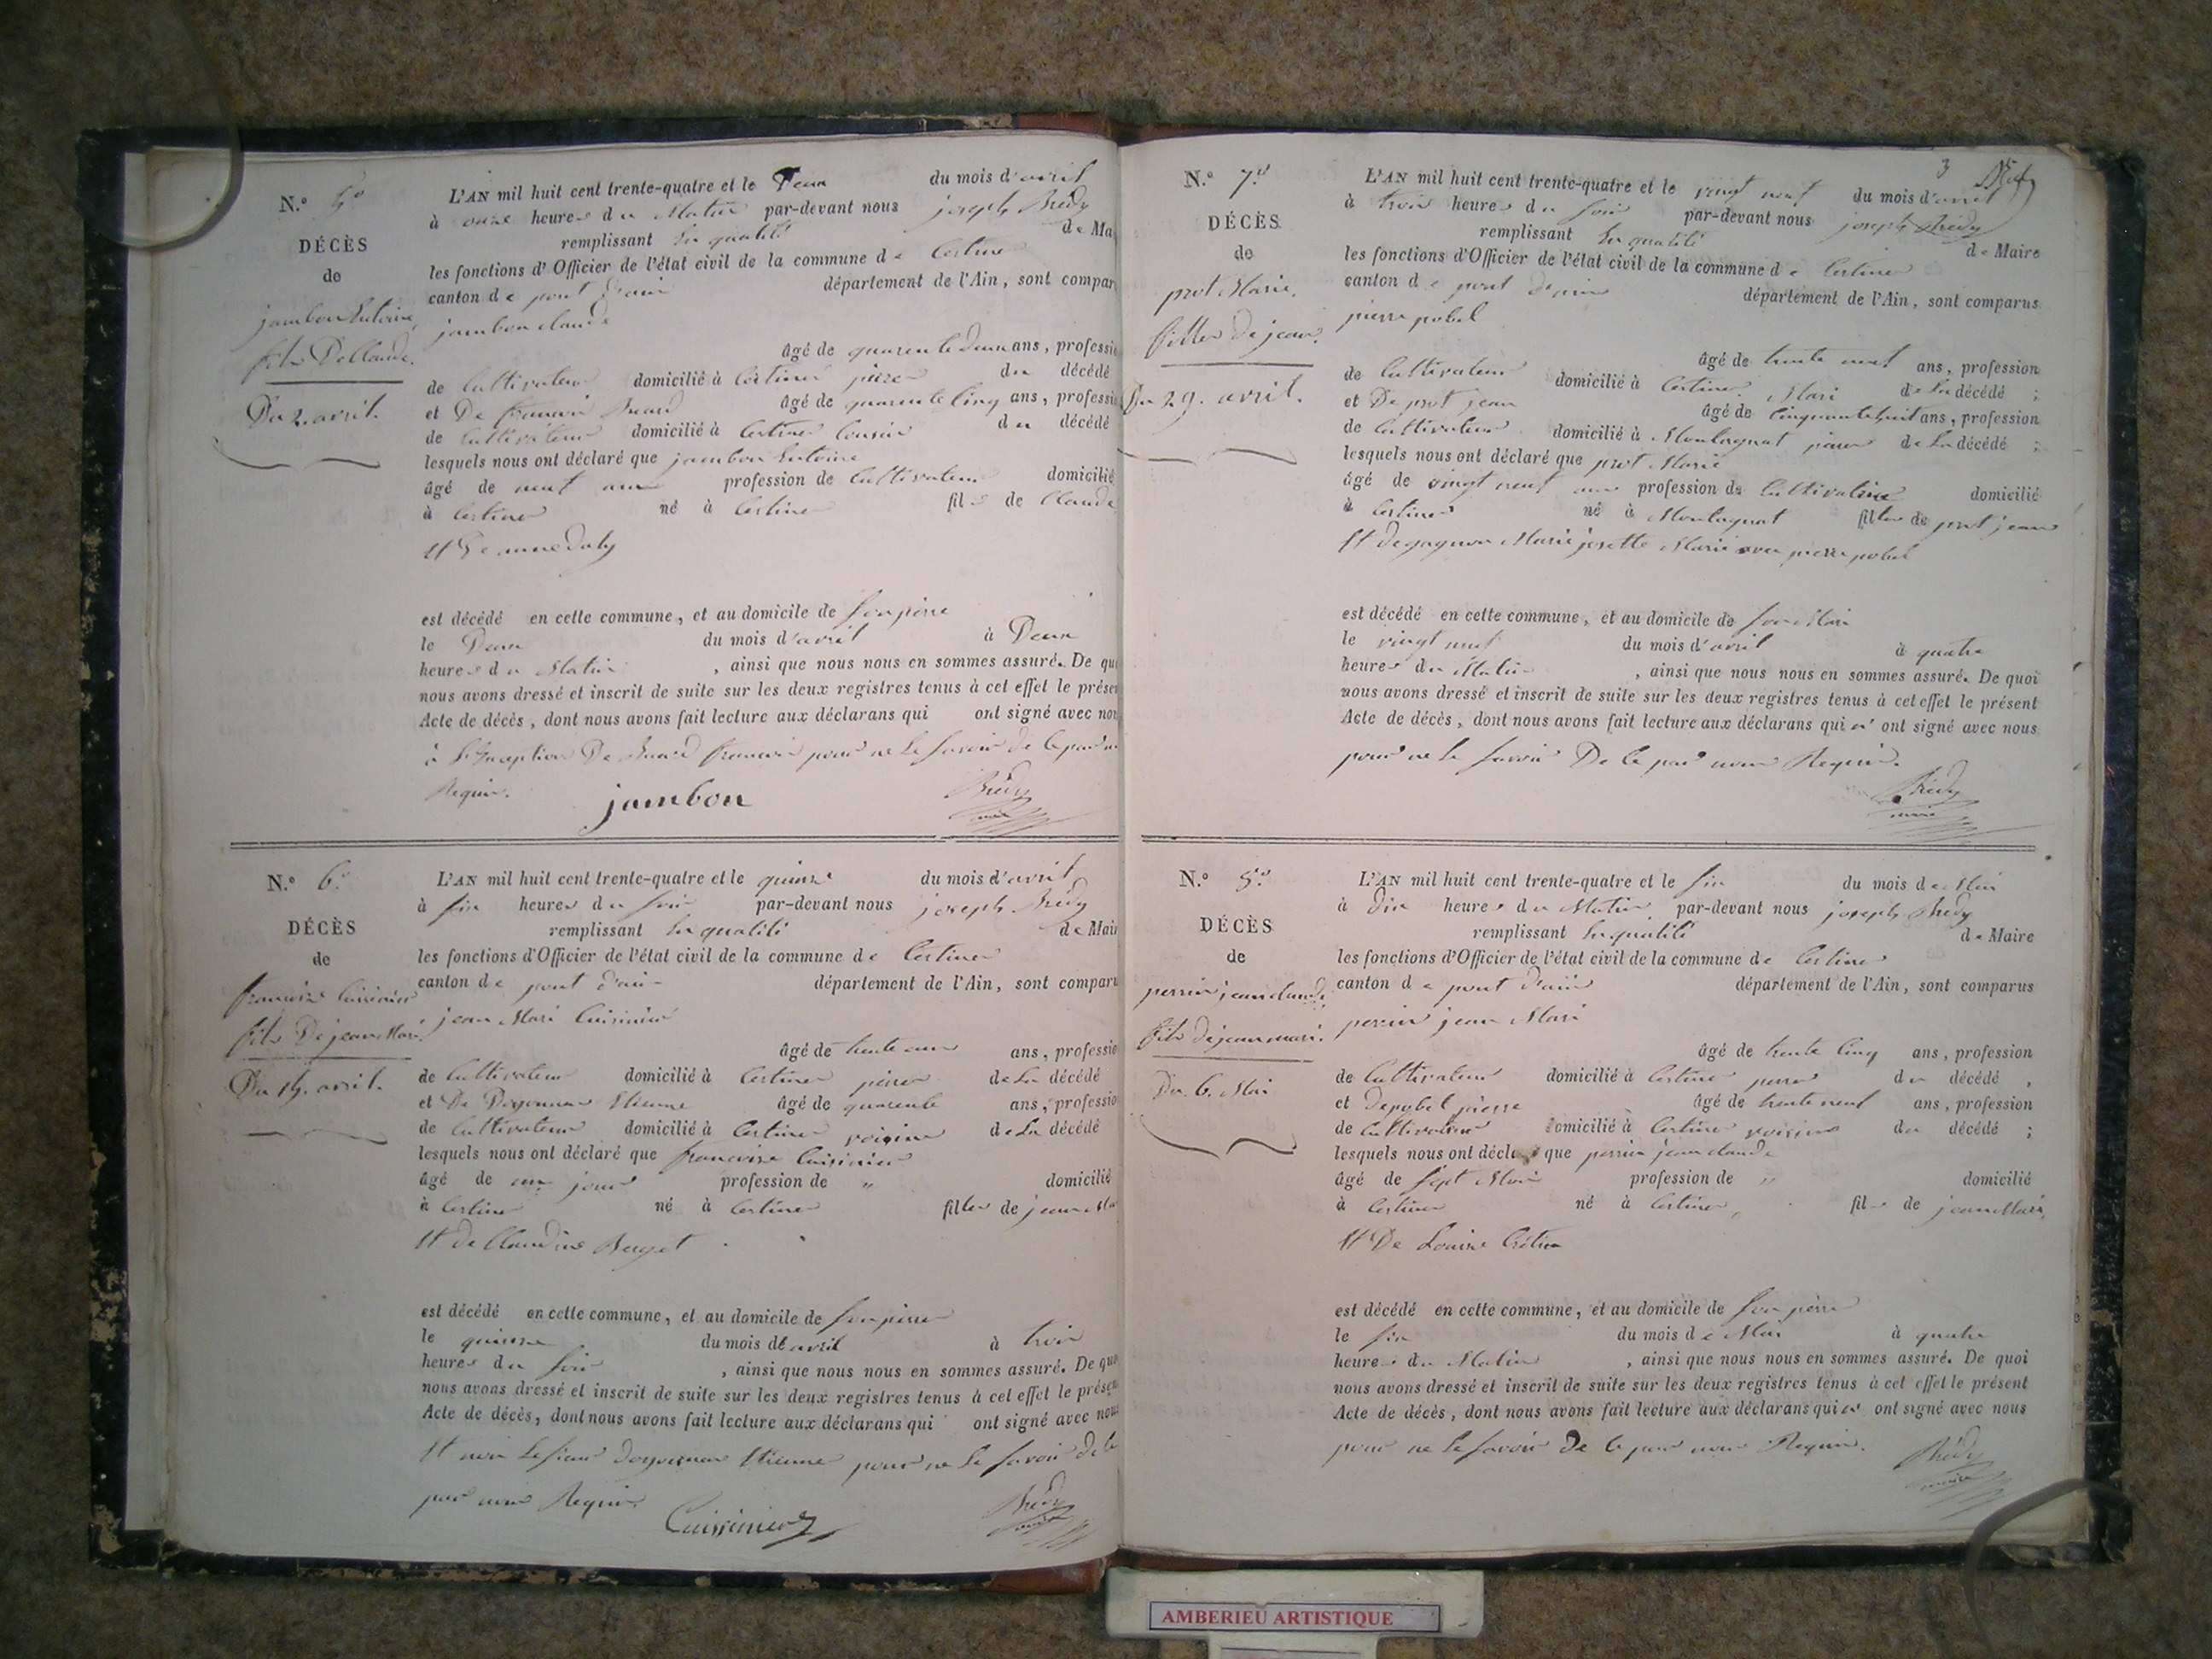 N.º 5º
DÉCÈS
de
jambon Antoine
fils De Claude.
Du 2. avril.
L'AN mil huit cent trente-quatre et le Deux du mois d'avril
à onze heures du Matin par-devant nous joseph
remplissant en qualité de Ma
les fonctions d'Officier de l'état civil de la commune de Certines
canton de pont d'ain département de l'Ain, sont compar
jambon claude
âgé de quarente deux ans, professi
de Cultivateur domicilié à Certines père du décédé
et De françois âgé de quarente Cinq ans, professi
de Cultivateur domicilié à Certines Cousin du décédé
lesquels nous ont déclaré que jambon Antoine
âgé de neuf ans profession de Cultivateur domicilié
à Certines né à Certines fils de Claude
Et
est décédé en cette commune, et au domicile de son père
le Deux du mois d'avril à Deux
heures du Matin, ainsi que nous nous en sommes assuré. De qu
nous avons dressé et inscrit de suite sur les deux registres tenus à cet effet le prése
Acte de décès, dont nous avons fait lecture aux déclarans qui ont signé avec no
à De françois pour ne le savoir de ce par n
Requis. jambon
N.º 6º
DÉCÈS
de
françoise Cuisinier
fille De jean Mari
Du 15. avril.
L'AN mil huit cent trente-quatre et le quinze du mois d'avril
à six heures du soir par-devant nous joseph
remplissant en qualité de Mair
les fonctions d'Officier de l'état civil de la commune de Certines
canton de pont d'ain département de l'Ain, sont compar
jean Mari Cuisinier
âgé de trente ans, professio
de Cultivateur domicilié à Certines père de La décédé
et De Etienne âgé de quarente ans, professio
de Cultivateur domicilié à Certines voisin de La décédé
lesquels nous ont déclaré que françoise Cuisinier
âgé de un jour profession de " domicilié
à Certines né à Certines fille de jean Ma
Et de Claudine Buget
est décédé en cette commune, et au domicile de son père
le quinze du mois de avril à trois
heures du soir, ainsi que nous nous en sommes assuré. De quo
nous avons dressé et inscrit de suite sur les deux registres tenus à cet effet le prése
Acte de décès, dont nous avons fait lecture aux déclarans qui ont signé avec nous
Et non Le sieur Etienne pour ne le savoir de ce
par nous Requis.
Cuissinier
3
N.º 7º
DÉCÈS
de
prot Marie.
fille de jean.
Du 29. avril.
L'AN mil huit cent trente-quatre et le vingt neuf du mois d'avril
à trois heures du soir par-devant nous joseph
remplissant en qualité de Maire
les fonctions d'Officier de l'état civil de la commune de Certines
canton de pont d'ain département de l'Ain, sont comparus
pierre pobel
âgé de trente neuf ans, profession
de Cultivateur domicilié à Certines Mari de La décédé ;
et De prot jean âgé de Cinquante huit ans, profession
de Cultivateur domicilié à Montagnat père de La décédé ;
lesquels nous ont déclaré que prot Marie
âgé de vingt neuf ans profession de Cultivatrice domicilié
à Certines né à Montagnat fille de prot jean
Et degagneu Marie josette Marié avec pierre pobel
est décédé en cette commune, et au domicile de son Mari
le vingt neuf du mois d'avril à quatre
heures du Matin, ainsi que nous nous en sommes assuré. De quoi
nous avons dressé et inscrit de suite sur les deux registres tenus à cet effet le présent
Acte de décès, dont nous avons fait lecture aux déclarans qui n'ont signé avec nous
pour ne le savoir De ce par nous Requis.
N.º 8º
DÉCÈS
de
perrin jean claude
fils de jean mari.
Du 6. Mai
L'AN mil huit cent trente-quatre et le six du mois de Mai
à Dix heures du Matin par-devant nous joseph
remplissant en qualité de Maire
les fonctions d'Officier de l'état civil de la commune de Certines
canton de pont d'ain département de l'Ain, sont comparus
perrin jean Mari
âgé de trente Cinq ans, profession
de Cultivateur domicilié à Certines père du décédé,
et De pobel pierre âgé de trente neuf ans, profession
de Cultivateur domicilié à Certines voisin du décédé ;
lesquels nous ont déclaré que perrin jean claude
âgé de sept Mois profession de " domicilié
à Certines né à Certines, fils de jean Mari,
Et De Louise
est décédé en cette commune, et au domicile de son père
le six du mois de Mai à quatre
heures du Matin, ainsi que nous nous en sommes assuré. De quoi
nous avons dressé et inscrit de suite sur les deux registres tenus à cet effet le présent
Acte de décès, dont nous avons fait lecture aux déclarans qui n'ont signé avec nous
pour ne le savoir De ce par nous Requis.
AMBERIEU ARTISTIQUE